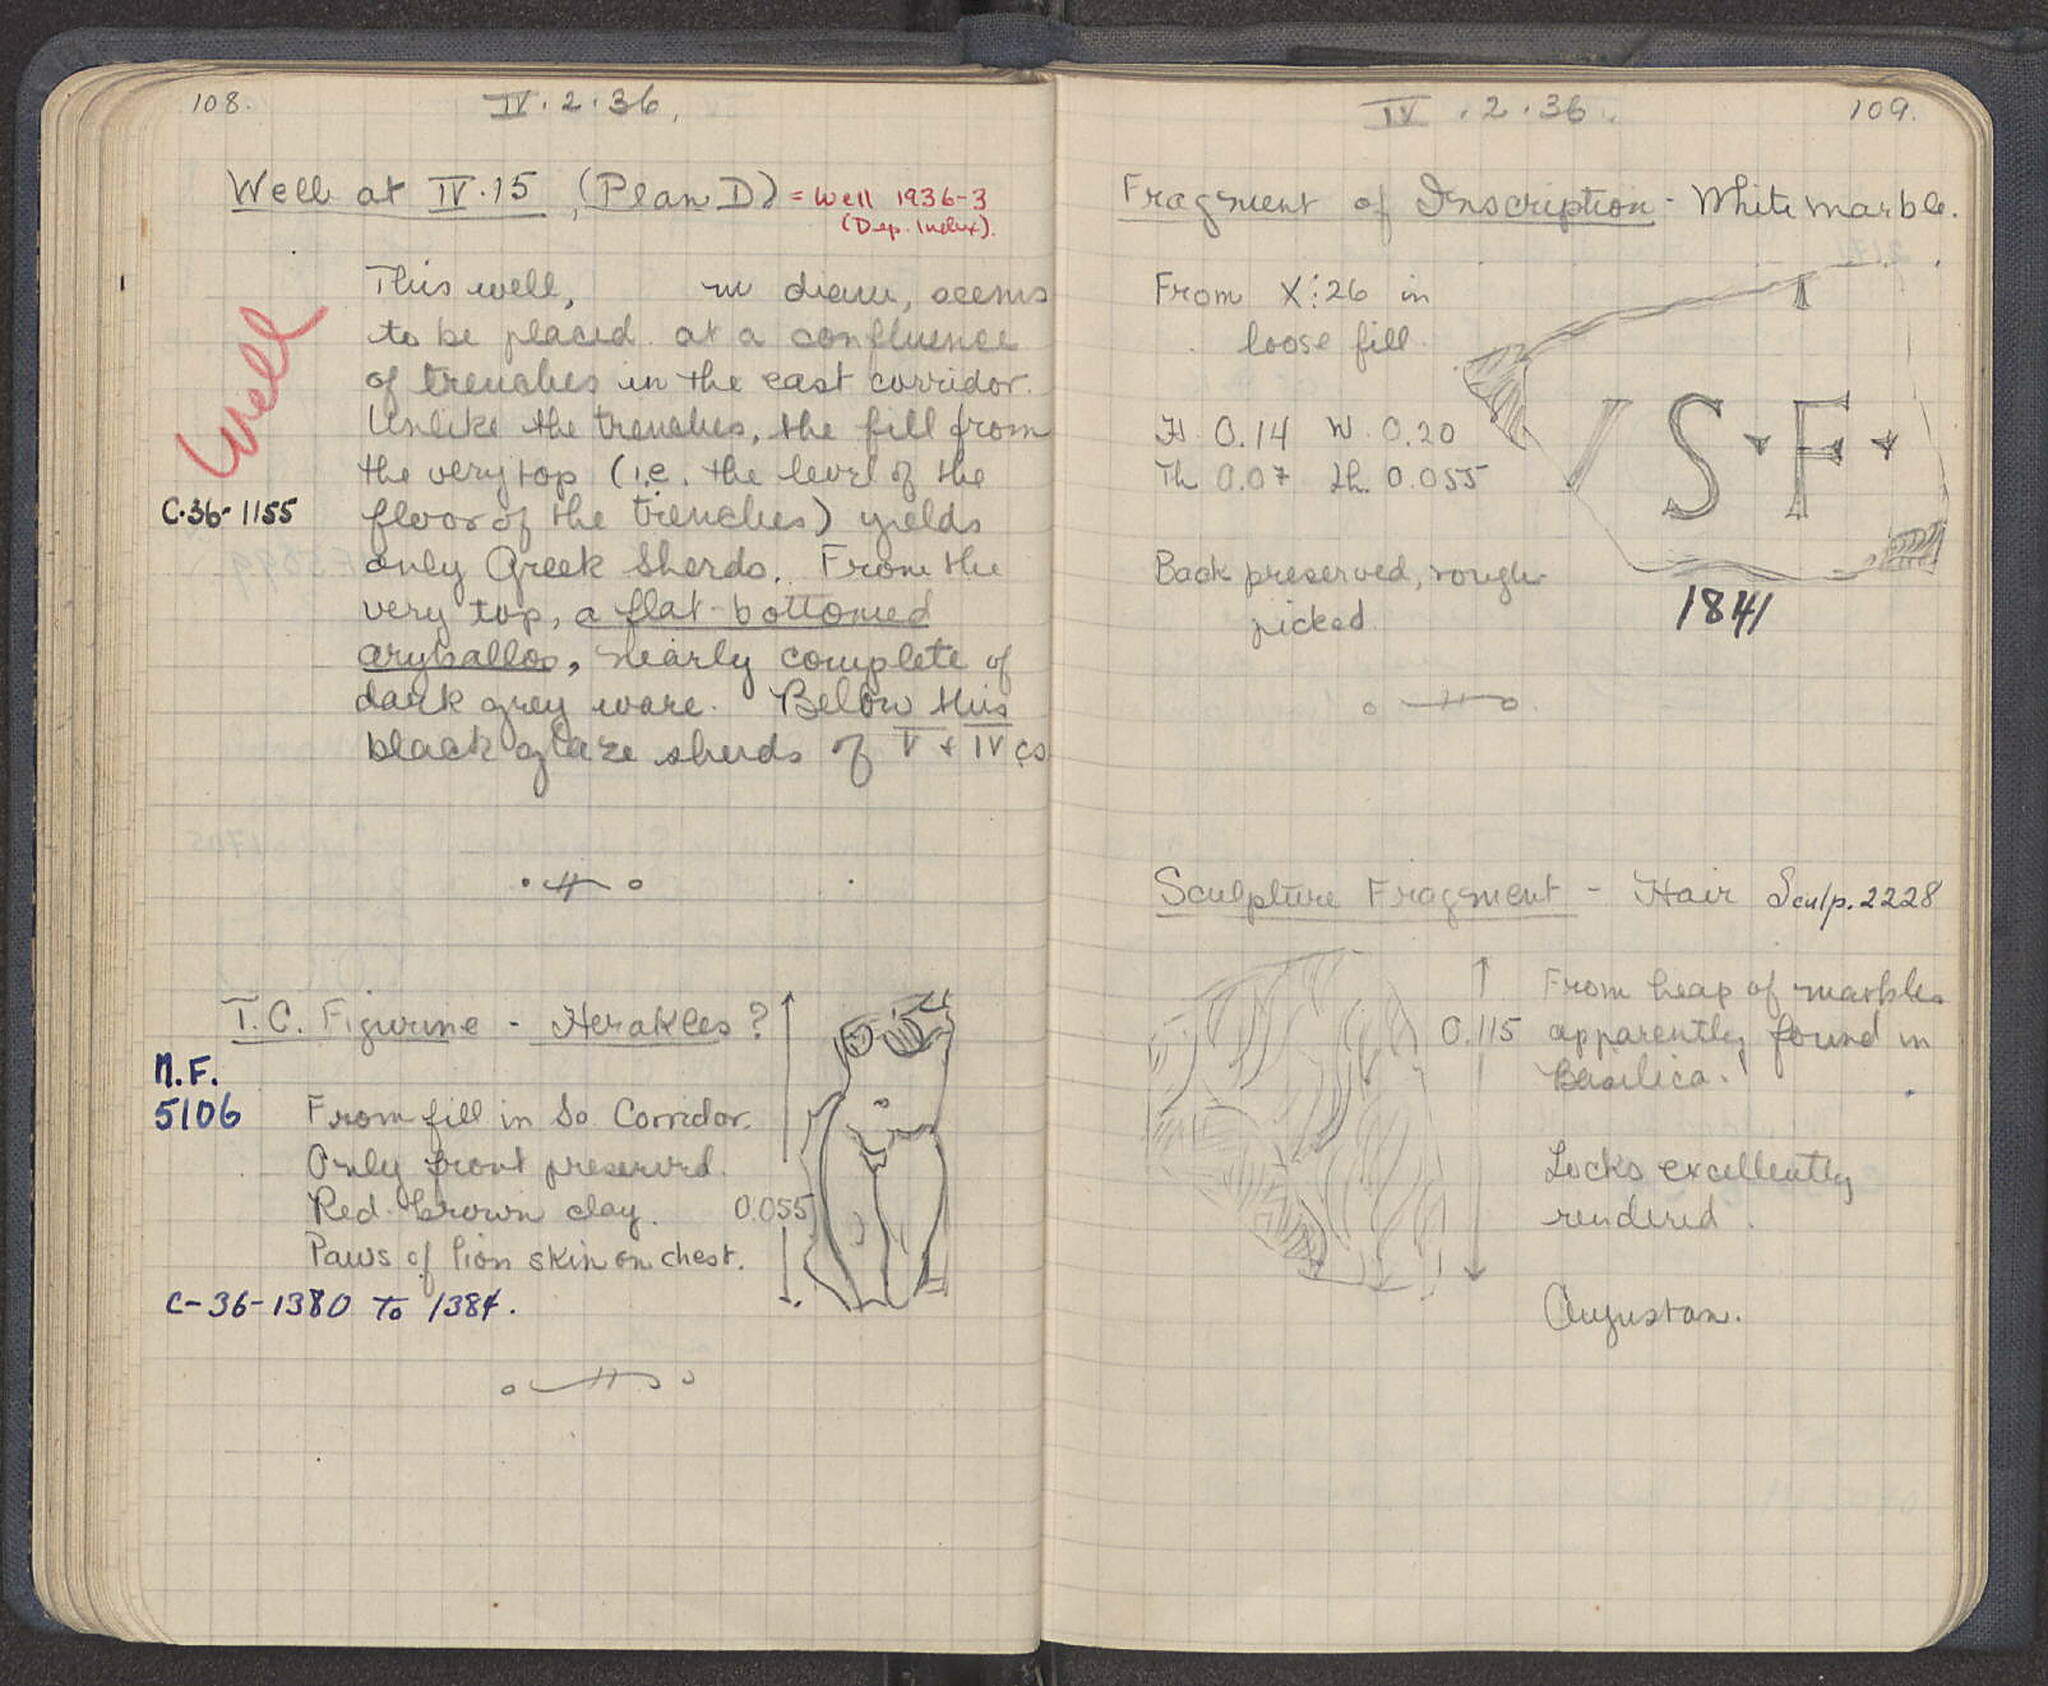 108.
IV.2.36.
Well at IV.15, (Plan D) = Well 1936-3
(Dep. Index).
Well
This well, m diam, seems
to be placed at a confluence
of trenches in the east corridor.
Unlike the trenches, the fill from
the very top (i.e. the level of the
C-36-1155
floor of the trenches) yields
only Greek Sherds. From the
very top, a flat-bottomed
aryballos, nearly complete of
dark grey ware. Below this
black glaze sherds of V & IV cs
T.C. Figurine - Herakles?
N.F.
5106
From fill in So Corridor.
Only front preserved.
Red-brown clay. 0.055
Paws of lion skin on chest.
C-36-1380 To 1384.
IV.2.36.
109.
Fragment of Inscription - White marble.
From X:26 in
loose fill
S·F·
H. 0.14 W. 0.20
Th 0.07 lh. 0.055
Back preserved, rough
picked
1841
Sculpture Fragment - Hair Sculp. 2228
From heap of marbles
0.115 apparently found in
Basilica.
Locks excellently
rendered.
Augustan.